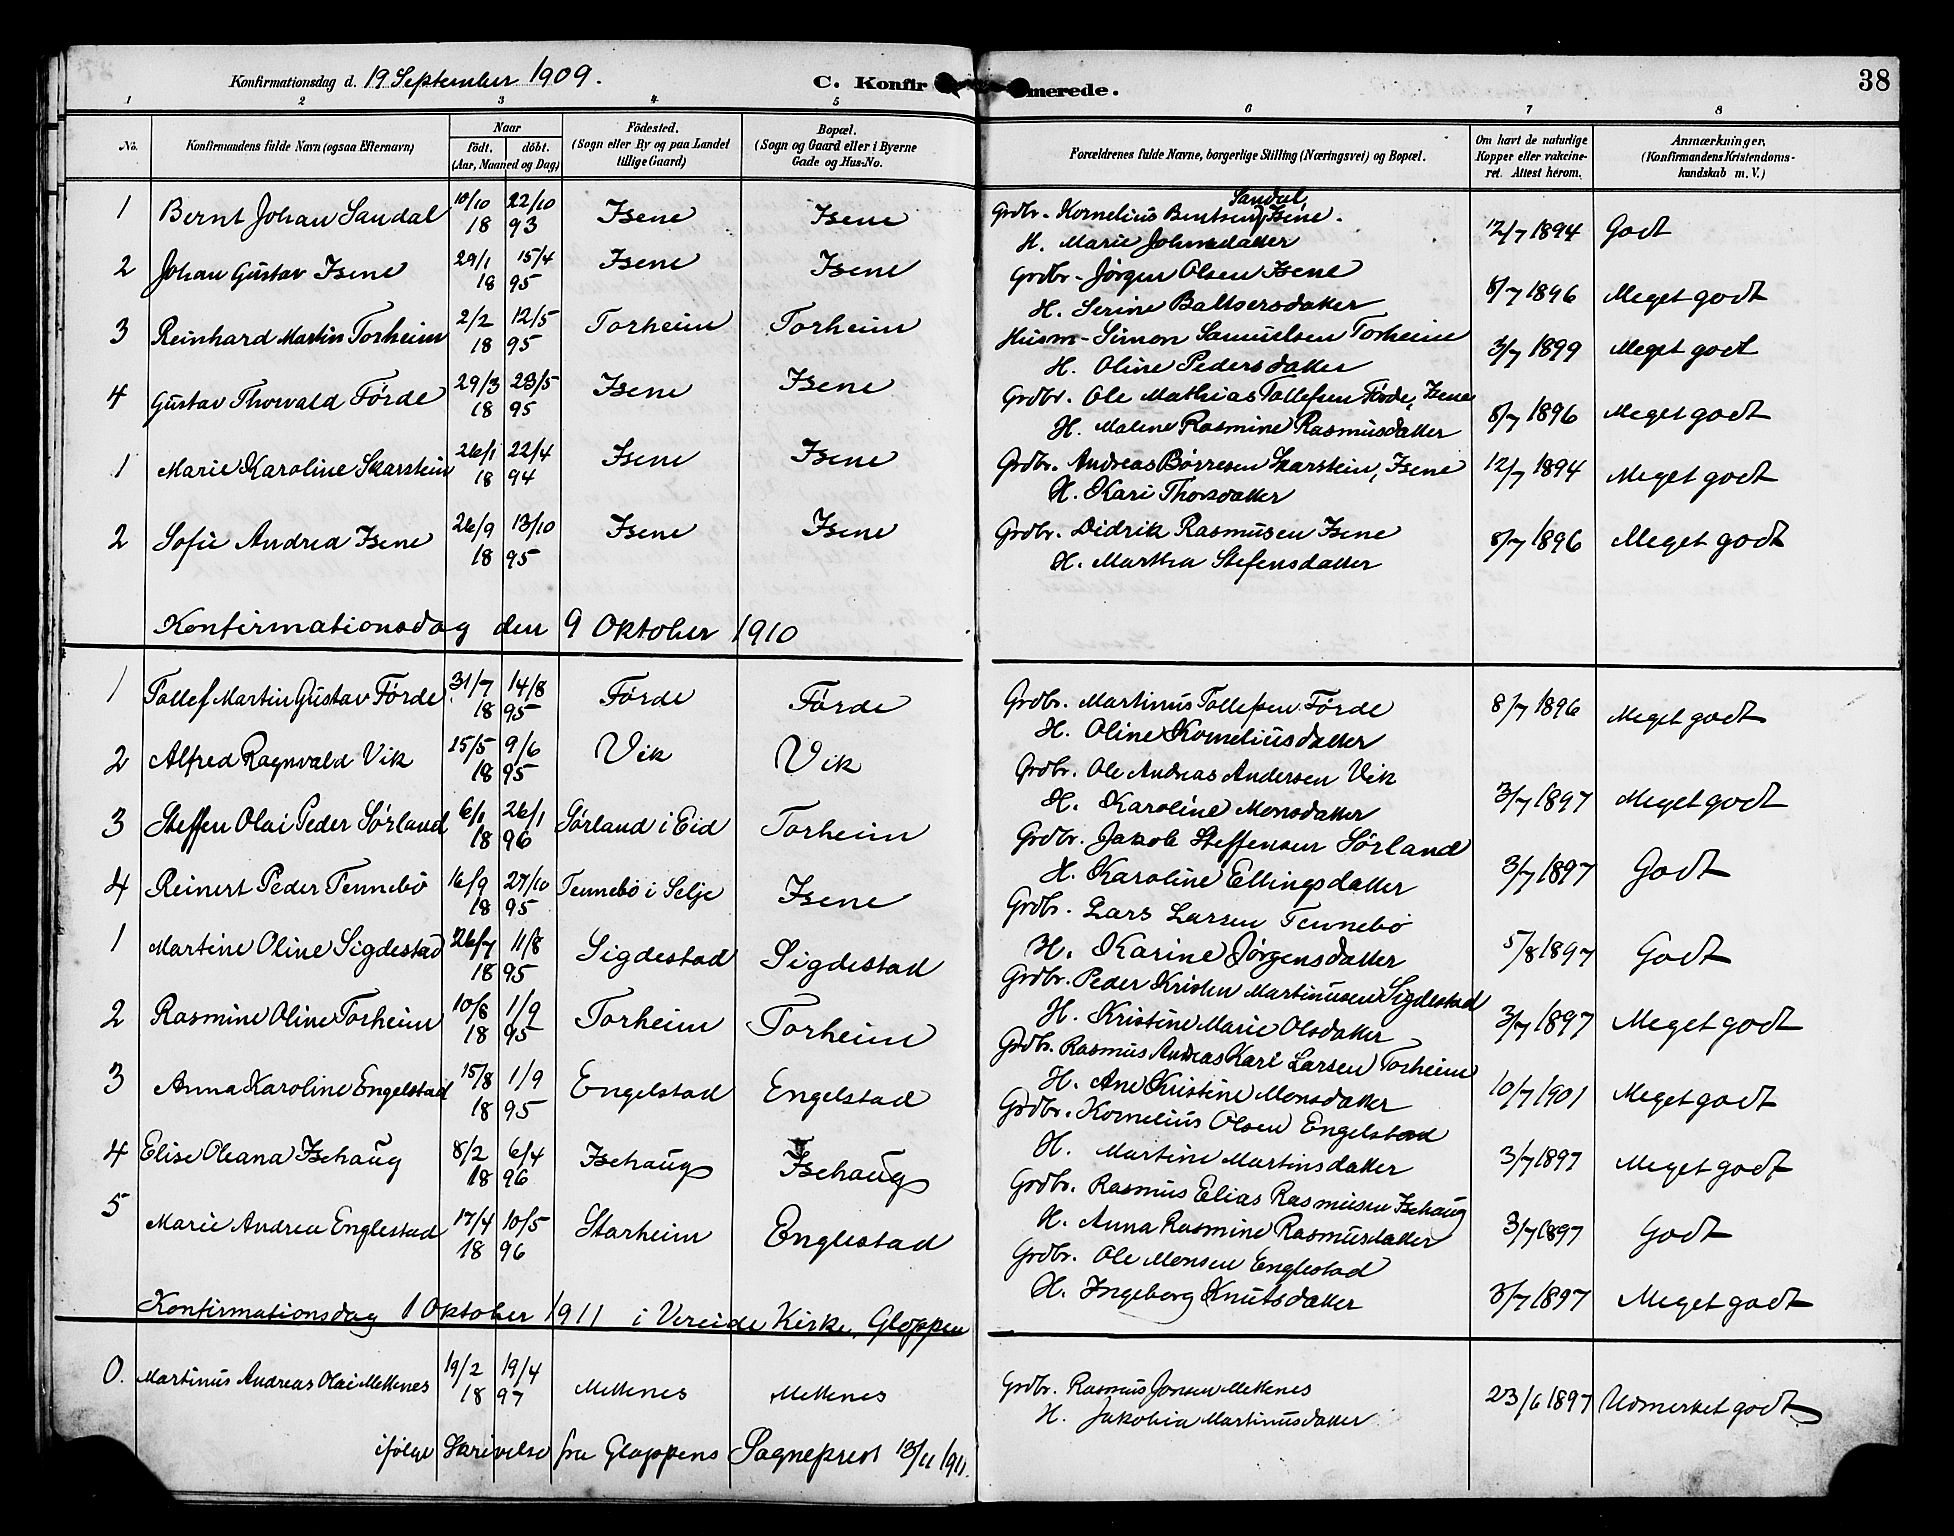 Konfirmationsdag d. 19 September 1909. C. Konfirmerede. 38
1 2 3 4 5 6 7 8
No. Konfirmandens fulde Navn (ogsaa Efternavn) Naar født. døbt. (Aar, Maaned og Dag) Födested. (Sogn eller By og paa Landet tillige Gaard) Bopæl. (Sogn og Gaard eller i Byerne Gade og Hus-No. Forældrenes fulde Navne, borgerlige Stilling (Næringsvei) og Bopæl. Om havt de naturlige Kopper eller vakcineret. Attest herom. Anmærkninger. (Konfirmandens Kristendomskundskab m. V.)
1 Bernt Johan Sandal 10/10 22/10 18 93 Isene Isene Grdbr. Kornelius Bentsen Sandal, Isene. 12/7 1894 Godt
H. Marie Johnsdatter
2 Johan Gustav Isene 29/1 15/4 18 95 Isene Isene Grdbr. Jørgen Olsen Isene 8/7 1896 Meget godt
H. Serine Baltsersdatter
3 Reinhard Martin Torheim 2/2 12/5 18 95 Torheim Torheim Husm. Simon Samuelsen Torheim 3/7 1899 Meget godt
H. Oline Pedersdatter
4 Gustav Thorvald Förde 29/3 23/5 18 95 Isene Isene Grdbr. Ole Mathias Tollefsen Förde, Isene 8/7 1896 Meget godt
H. Malene Rasmine Rasmusdatter
1 Marie Karoline Skarstein 26/1 22/4 18 94 Isene Isene Grdbr. Andreas Børresen Skarstein, Isene 12/7 1894 Meget godt
H. Kari Thorsdatter
2 Sofie Andrea Isene 26/9 13/10 18 95 Isene Isene Grdbr. Didrik Rasmusen Isene 8/7 1896 Meget godt
H. Martha Stefensdatter
Konfirmationsdag den 9 Oktober 1910
1 Tollef Martin Gustav Förde 31/7 14/8 18 95 Förde Förde Grdbr. Martinus Tollefsen Förde 8/7 1896 Meget godt
H. Oline Korneliusdatter
2 Alfred Ragnvald Vik 15/5 9/6 18 95 Vik Vik Grdbr. Ole Andreas Andersen Vik 3/7 1897 Meget godt
H. Karoline Monsdatter
3 Steffen Olai Peder Sørland 6/1 26/1 18 96 Sørland i Eid Torheim Grdbr. Jakob Steffensen Sørland 3/7 1897 Godt
H. Karoline Ellingsdatter
4 Reinert Peder Tennebø 16/9 27/10 18 95 Tennebø i Selje Isene Grdbr. Lars Larsen Tennebø 5/8 1897 Godt
H. Karine Jørgensdatter
1 Martine Oline Sigdestad 26/7 11/8 18 95 Sigdestad Sigdestad Grdbr. Peder Kristen Martinusen Sigdestad 3/7 1897 Meget godt
H. Kristine Marie Olsdatter
2 Rasmine Oline Torheim 10/8 1/9 18 95 Torheim Torheim Grdbr. Rasmus Andreas Kari Larsen Torheim 10/7 1901 Meget godt
H. Ane Kristine Monsdatter
3 Anna Karoline Engelstad 15/8 1/9 18 95 Engelstad Engelstad Grdbr. Kornelius Olsen Engelstad 3/7 1897 Meget godt
H. Martine Martinsdatter
4 Elise Oleana Isehaug 8/2 6/4 18 96 Isehaug Isehaug Grdbr. Rasmus Elias Rasmusen Isehaug 3/7 1897 Godt
H. Anna Rasmine Rasmusdatter
5 Marie Andrea Englestad 17/4 10/5 18 96 Starheim Englestad Grdbr. Ole Monsen Englestad 3/7 1897 Meget godt
H. Ingeborg Knutsdatter
Konfirmationsdag 1 Oktober 1911 i Vereide Kirke, Gloppen
0. Martinus Andreas Olai Mettenes 19/2 19/4 18 97 Mettenes Mettenes Grdbr. Rasmus Jonsen Mettenes 23/6 1897 Udmerket godt
H. Jakobia Martinusdatter
ifølge Skrivelse fra Gloppens Sogneprest 13/11 1911.